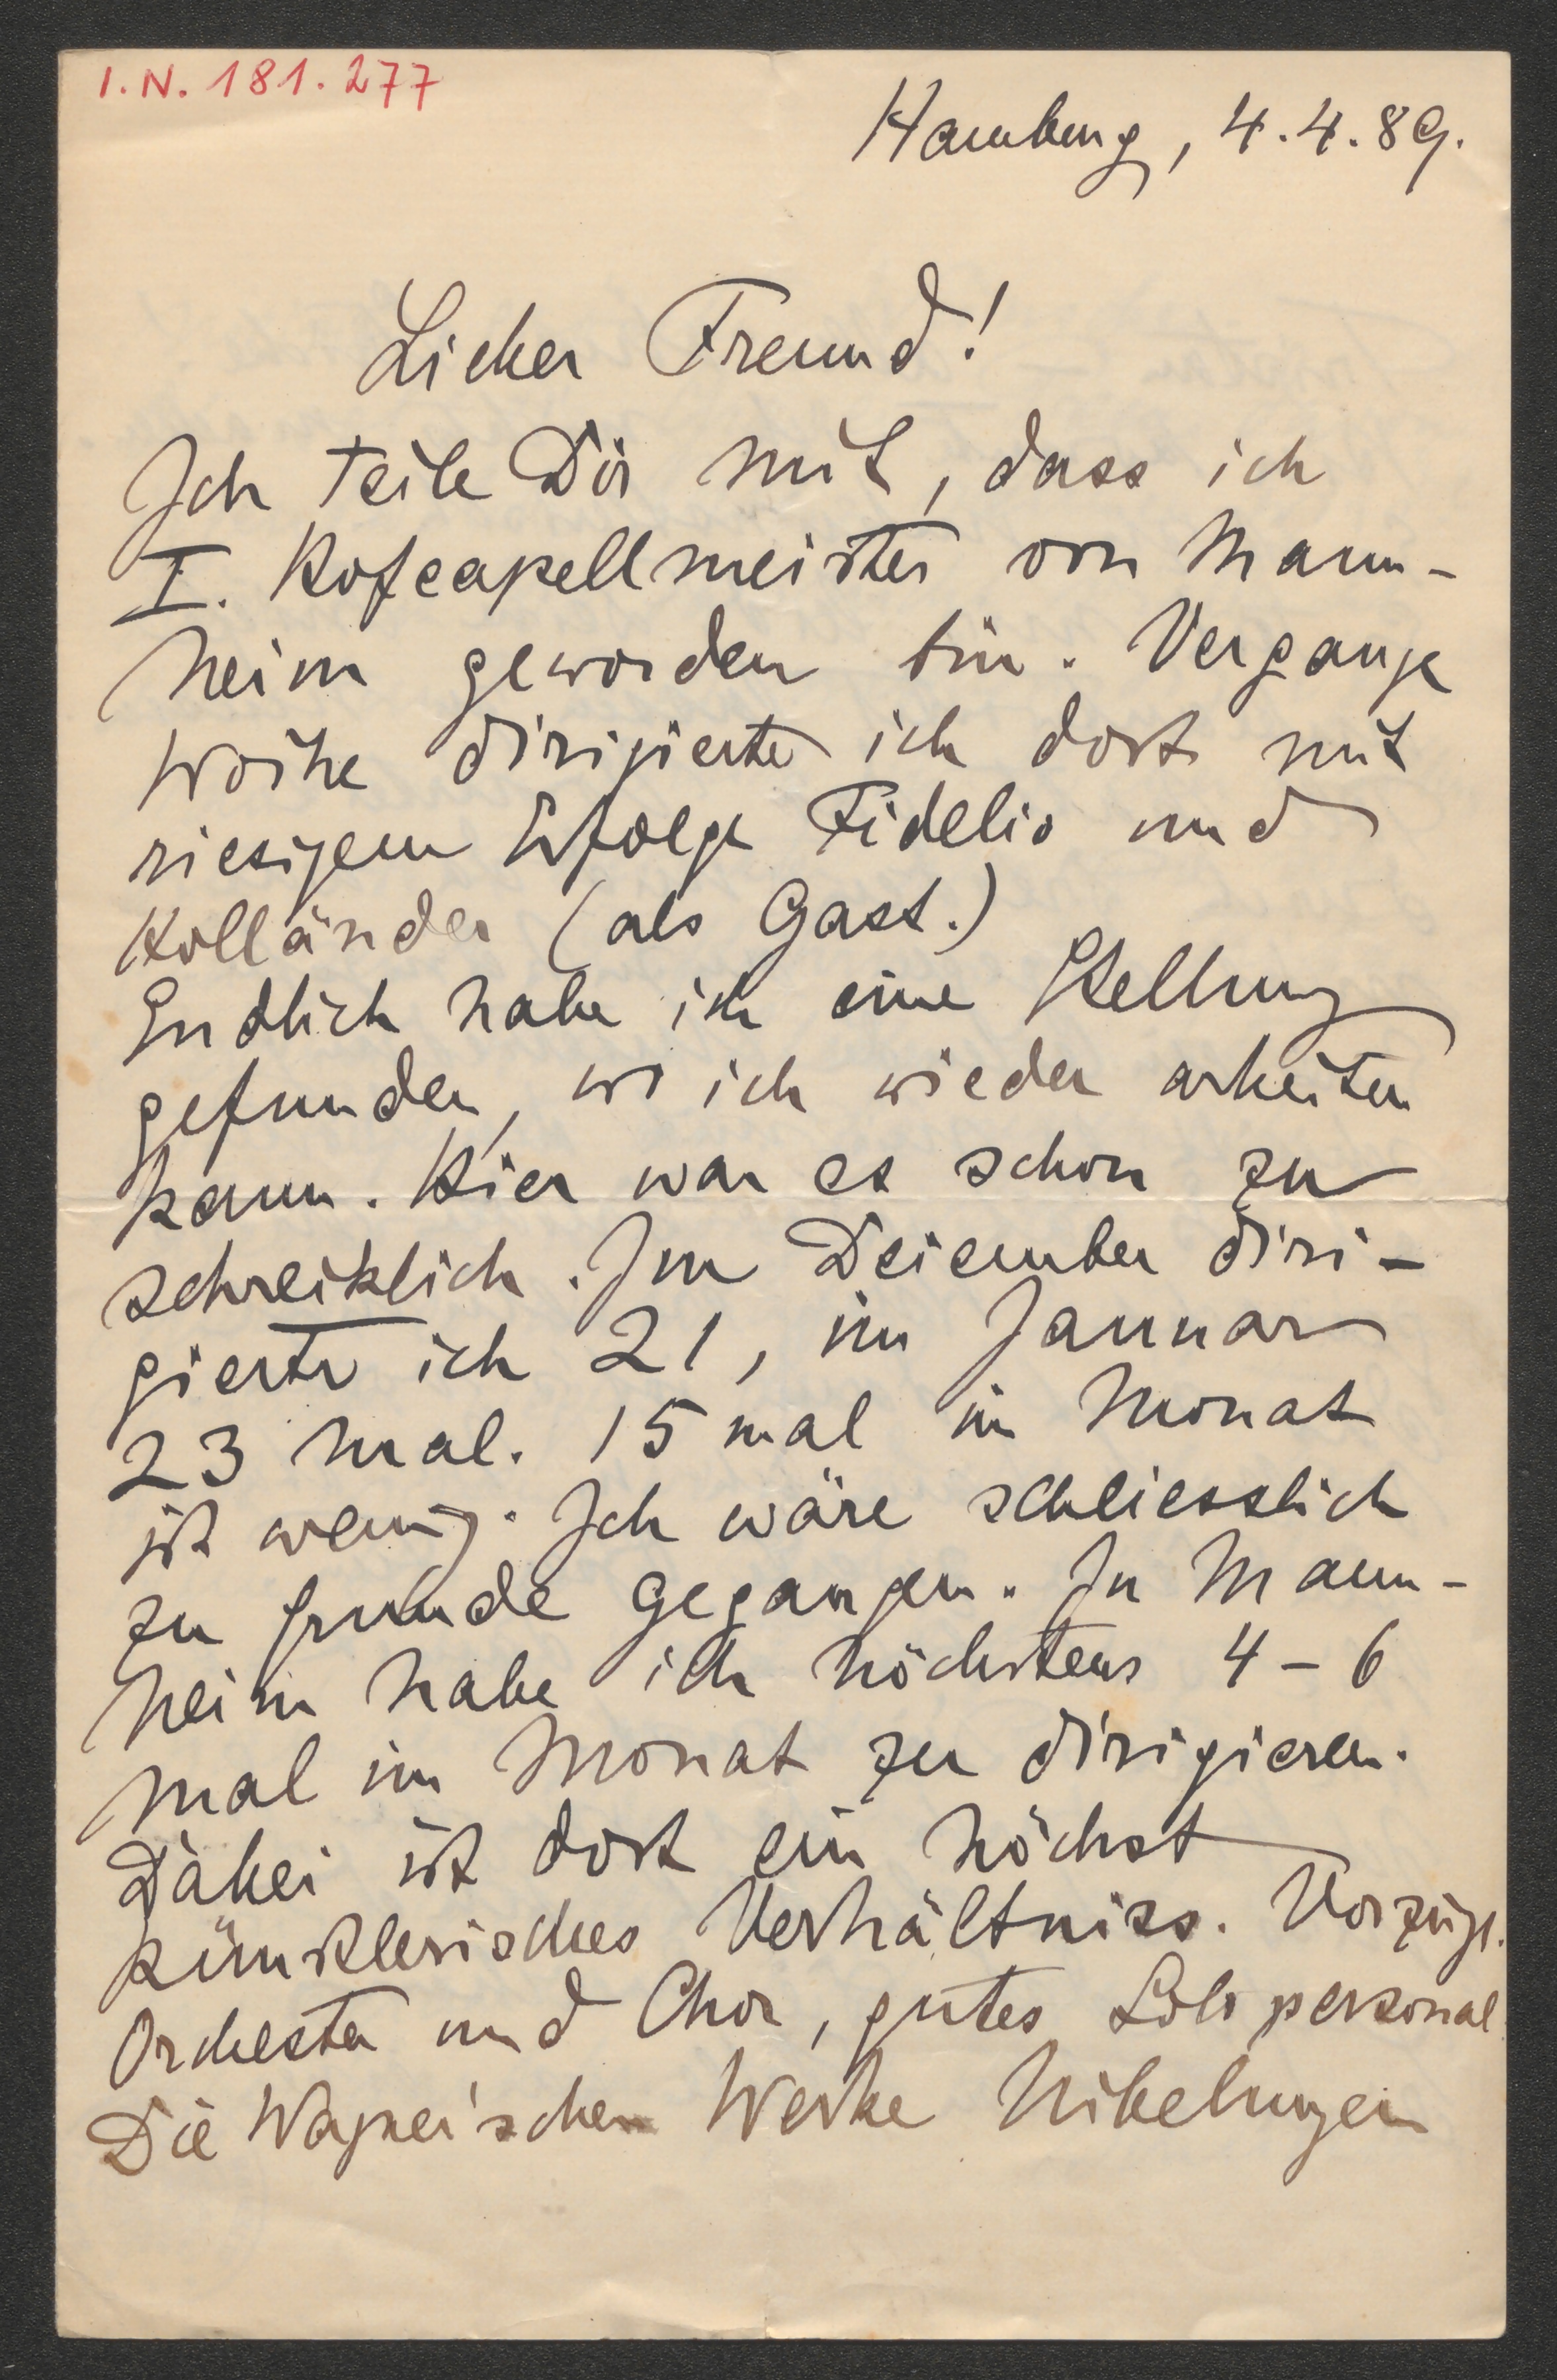 I.N. 181.277
Hamburg, 4.4.89.
Lieber Freund!
Ich teile Dir mit, dass ich
I. Hofcapellmeister von Mann-
heim geworden bin. Vergange
Woche dirigierte ich dort mit
riesigem Erfolge Fidelio und
Holländer (als Gast.)
Endlich habe ich eine Stellung
gefunden, wo ich wieder arbeiten
kann. Hier war es schon zu
schrecklich. Im Dezember diri-
gierte ich 21, im Januar
23 mal. 15 mal im Monat
ist wenig. Ich wäre schliesslich
zu grunde gegangen. In Mann-
heim habe ich höchstens 4-6
mal im Monat zu dirigieren.
Dabei ist dort ein höchst
künstlerisches Verhältniss. Vorzügl.
Orchester und Chor, gutes Solopersonal.
Die Wagner'schen Werke Nibelungen